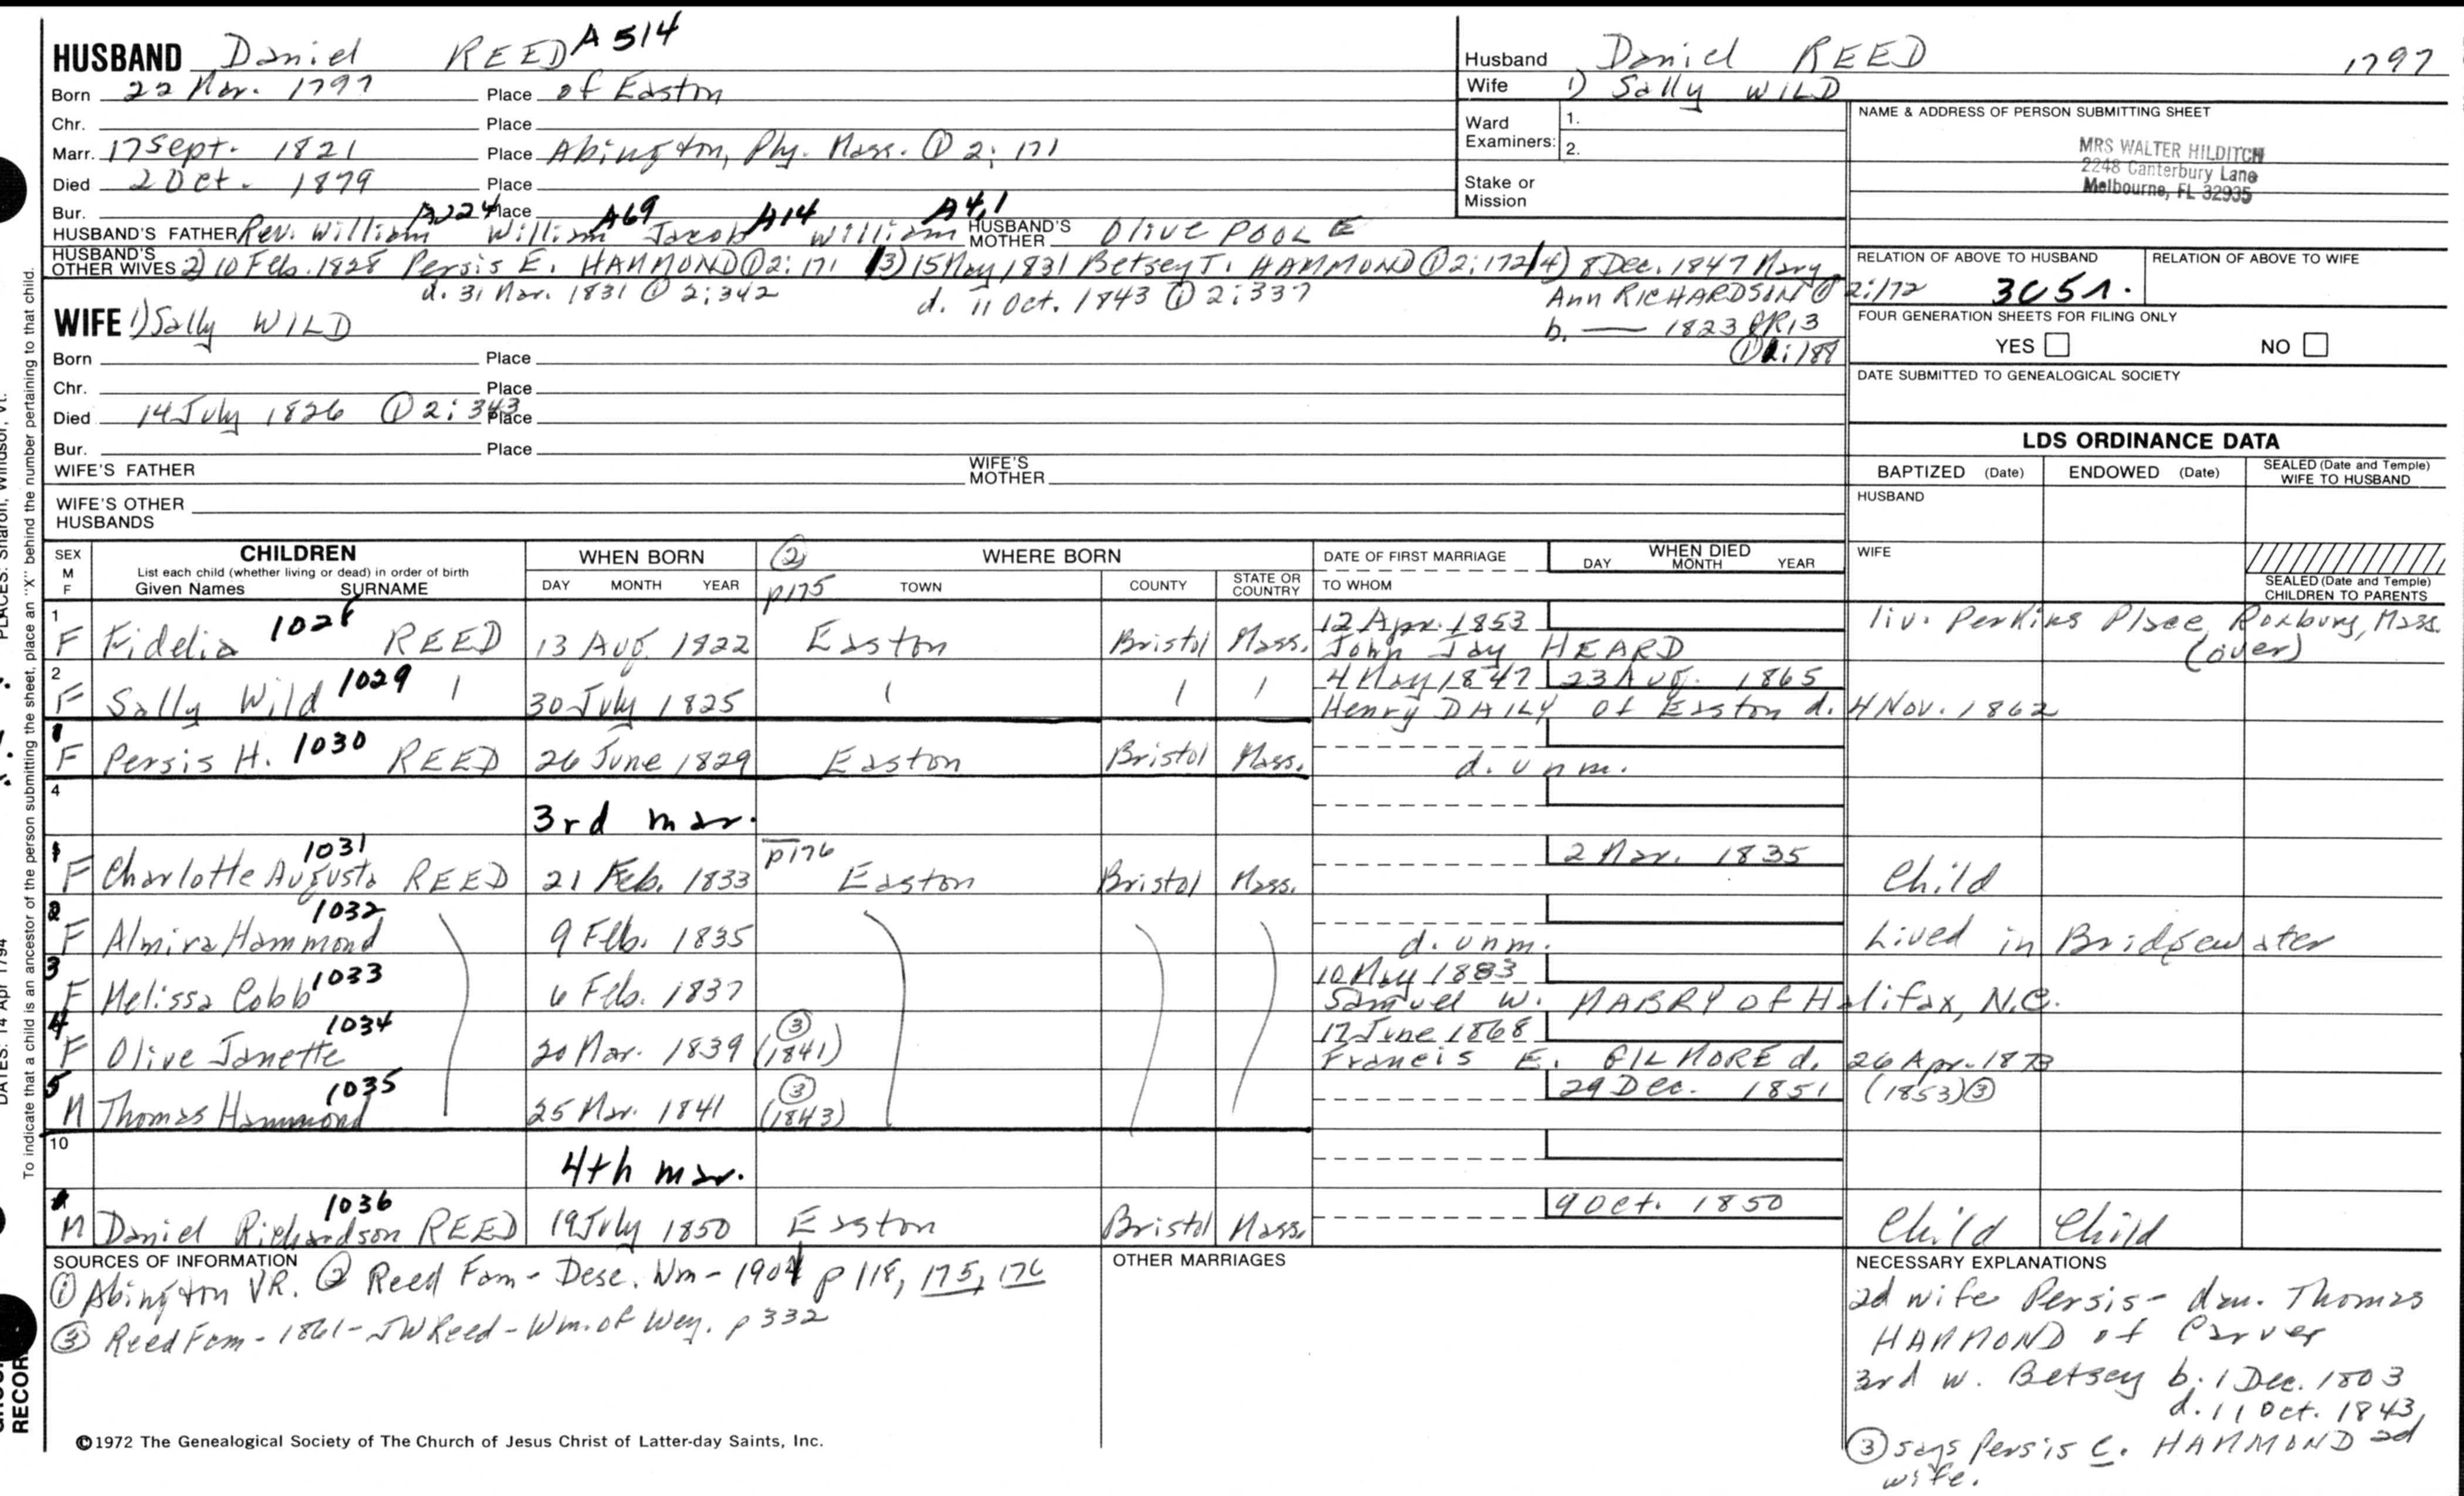 HUSBAND Daniel REED A514
Born 22 Mar. 1797 Place of Easton
Chr. Place
Marr. 17 Sept. 1821 Place Abington, Ply. Mass. ① 2:171
Died 2 Oct. 1879 Place
Bur. Place
A224 A69 A14 A4,1
HUSBAND'S FATHER Rev. William William Jacob William HUSBAND'S MOTHER Olive POOLE
HUSBAND'S OTHER WIVES 2) 10 Feb. 1828 Persis E. HAMMOND ① 2:171 (3) 15 May 1831 Betsey T. HAMMOND ① 2:172 (4) 8 Dec. 1847 Mary
d. 31 Mar. 1831 ① 2:342 d. 11 Oct. 1843 ① 2:337 Ann RICHARDSON ① 2:172
b. — 1823 PR13
① 2:188
WIFE 1) Sally WILD
Born Place
Chr. Place
Died 14 July 1826 ① 2:343 Place
Bur. Place
WIFE'S FATHER WIFE'S MOTHER
WIFE'S OTHER HUSBANDS
Husband Daniel REED 1797
Wife 1) Sally WILD
Ward Examiners: 1.
2.
Stake or Mission
NAME & ADDRESS OF PERSON SUBMITTING SHEET
MRS WALTER HILDITCH
2248 Canterbury Lane
Melbourne, FL 32935
RELATION OF ABOVE TO HUSBAND RELATION OF ABOVE TO WIFE
FOUR GENERATION SHEETS FOR FILING ONLY
YES NO
DATE SUBMITTED TO GENEALOGICAL SOCIETY
LDS ORDINANCE DATA
BAPTIZED (Date) ENDOWED (Date) SEALED (Date and Temple) WIFE TO HUSBAND
HUSBAND
WIFE
SEALED (Date and Temple) CHILDREN TO PARENTS
SEX M F CHILDREN WHEN BORN ② WHERE BORN DATE OF FIRST MARRIAGE WHEN DIED
List each child (whether living or dead) in order of birth
Given Names SURNAME DAY MONTH YEAR p175 TOWN COUNTY STATE OR COUNTRY TO WHOM DAY MONTH YEAR
1 F Fidelia 1028 REED 13 Aug. 1822 Easton Bristol Mass. 12 Apr. 1853 liv. Perkins Place, Roxbury, Mass.
John Jay HEARD (over)
2 F Sally Wild 1029 30 July 1825 4 May 1847 23 Aug. 1865
Henry DAILY of Easton d. 4 Nov. 1862
1 F Persis H. 1030 REED 26 June 1829 Easton Bristol Mass. d. unm.
4 3rd mar.
1 F Charlotte Augusta 1031 REED 21 Feb. 1833 p176 Easton Bristol Mass. 2 Mar. 1835 Child
2 F Almira Hammond 1032 9 Feb. 1835 d. unm. Lived in Bridgewater
3 F Melissa Cobb 1033 6 Feb. 1837 10 May 1883
Samuel W. MABRY of Halifax, N.C.
4 F Olive Janette 1034 20 Mar. 1839 ③ (1841) 17 June 1868
Francis E. GILMORE d. 26 Apr. 1873
5 M Thomas Hammond 1035 25 Mar. 1841 ③ (1843) 29 Dec. 1851 (1853) ③
10 4th mar.
1 M Daniel Richardson 1036 REED 19 July 1850 Easton Bristol Mass. 9 Oct. 1850 Child Child
SOURCES OF INFORMATION
① Abington VR. ② Reed Fam - Desc. Wm - 1901 p 118, 175, 176
③ Reed Fam - 1861 - JW Reed - Wm. of Wey. p 332
OTHER MARRIAGES
NECESSARY EXPLANATIONS
2d wife Persis - dau. Thomas
HAMMOND of Carver
3rd w. Betsey b. 1 Dec. 1803
d. 11 Oct. 1843
③ says Persis C. HAMMOND 2d
wife.
©1972 The Genealogical Society of The Church of Jesus Christ of Latter-day Saints, Inc.
To indicate that a child is an ancestor of the person submitting the sheet, place an "X" behind the number pertaining to that child.
DATES: 14 Apr 1794
PLACES: Sharon, Windsor, Vt.
RECOR